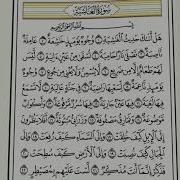 سُورَةُ الغَاشِيَةِ
بِسْمِ ٱللَّهِ ٱلرَّحْمَٰنِ ٱلرَّحِيمِ
هَلْ أَتَىٰكَ حَدِيثُ ٱلْغَٰشِيَةِ ١ وُجُوهٌ يَوْمَئِذٍ خَٰشِعَةٌ ٢ عَامِلَةٌ
نَّاصِبَةٌ ٣ تَصْلَىٰ نَارًا حَامِيَةً ٤ تُسْقَىٰ مِنْ عَيْنٍ ءَانِيَةٍ ٥ لَّيْسَ
لَهُمْ طَعَامٌ إِلَّا مِن ضَرِيعٍ ٦ لَّا يُسْمِنُ وَلَا يُغْنِى مِن جُوعٍ ٧ وُجُوهٌ
يَوْمَئِذٍ نَّاعِمَةٌ ٨ لِّسَعْيِهَا رَاضِيَةٌ ٩ فِى جَنَّةٍ عَالِيَةٍ ١٠ لَّا تَسْمَعُ
فِيهَا لَٰغِيَةً ١١ فِيهَا عَيْنٌ جَارِيَةٌ ١٢ فِيهَا سُرُرٌ مَّرْفُوعَةٌ ١٣ وَأَكْوَابٌ
مَّوْضُوعَةٌ ١٤ وَنَمَارِقُ مَصْفُوفَةٌ ١٥ وَزَرَابِىُّ مَبْثُوثَةٌ ١٦ أَفَلَا يَنظُرُونَ
إِلَى ٱلْإِبِلِ كَيْفَ خُلِقَتْ ١٧ وَإِلَى ٱلسَّمَآءِ كَيْفَ رُفِعَتْ ١٨ وَإِلَى
ٱلْجِبَالِ كَيْفَ نُصِبَتْ ١٩ وَإِلَى ٱلْأَرْضِ كَيْفَ سُطِحَتْ ٢٠
فَذَكِّرْ إِنَّمَآ أَنتَ مُذَكِّرٌ ٢١ لَّسْتَ عَلَيْهِم بِمُصَيْطِرٍ ٢٢